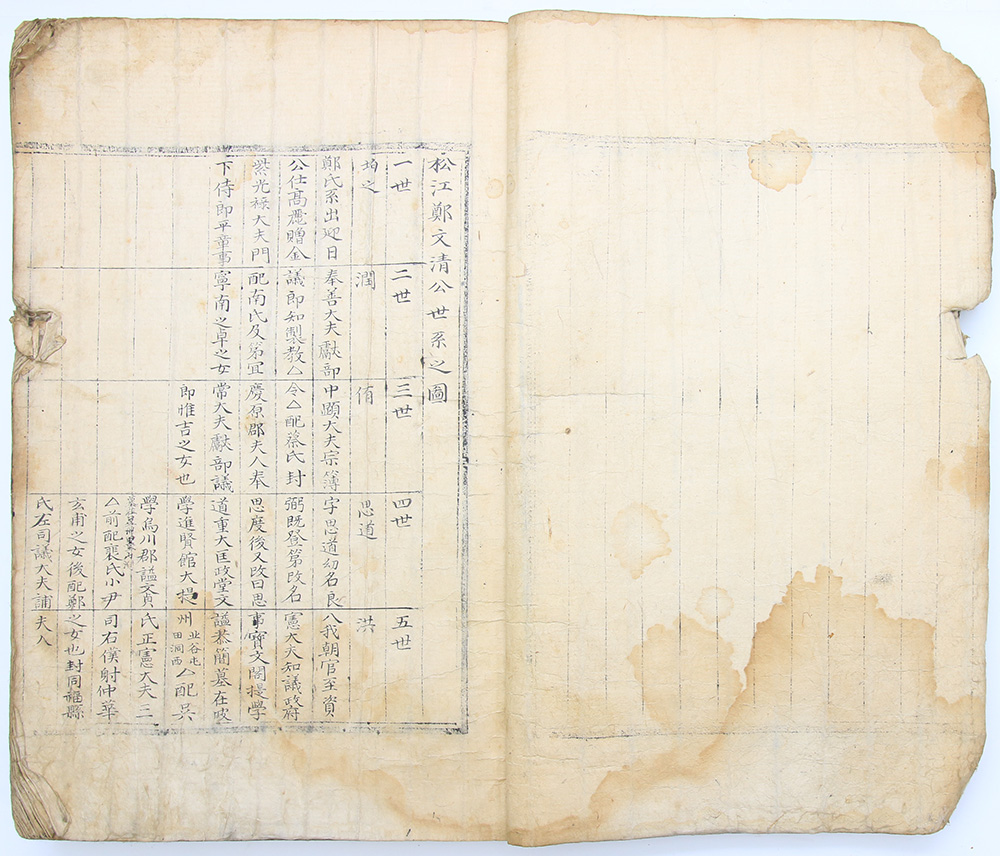 松江鄭文清公世系之圖
一世
均之
鄭氏系出迎日
公仕髙麗贈金
紫光禄大夫門
下侍郎平章事
二世
潤
奉善大夫獻部
議郎知製教△
配南氏及第宜
寧南之卓之女
三世
侑
中顯大夫宗簿
令△配蔡氏封
慶原郡夫人奉
常大夫獻部議
郎惟吉之女也
四世
思道
字思道初名良
弼既登第改名
思度後又改曰思
道重大匡政堂文
學進賢館大提
學烏川郡謚文貞
△前配裵氏小尹
玄甫之女後配鄭
氏左司議大夫誧
五世
洪
入我朝官至資
憲大夫知議政府
事寶文閣提學
謚恭簡墓在坡
州北谷屯田洞西△配吳
氏正憲大夫三
司右僕射仲華
之女也封同福縣
夫人